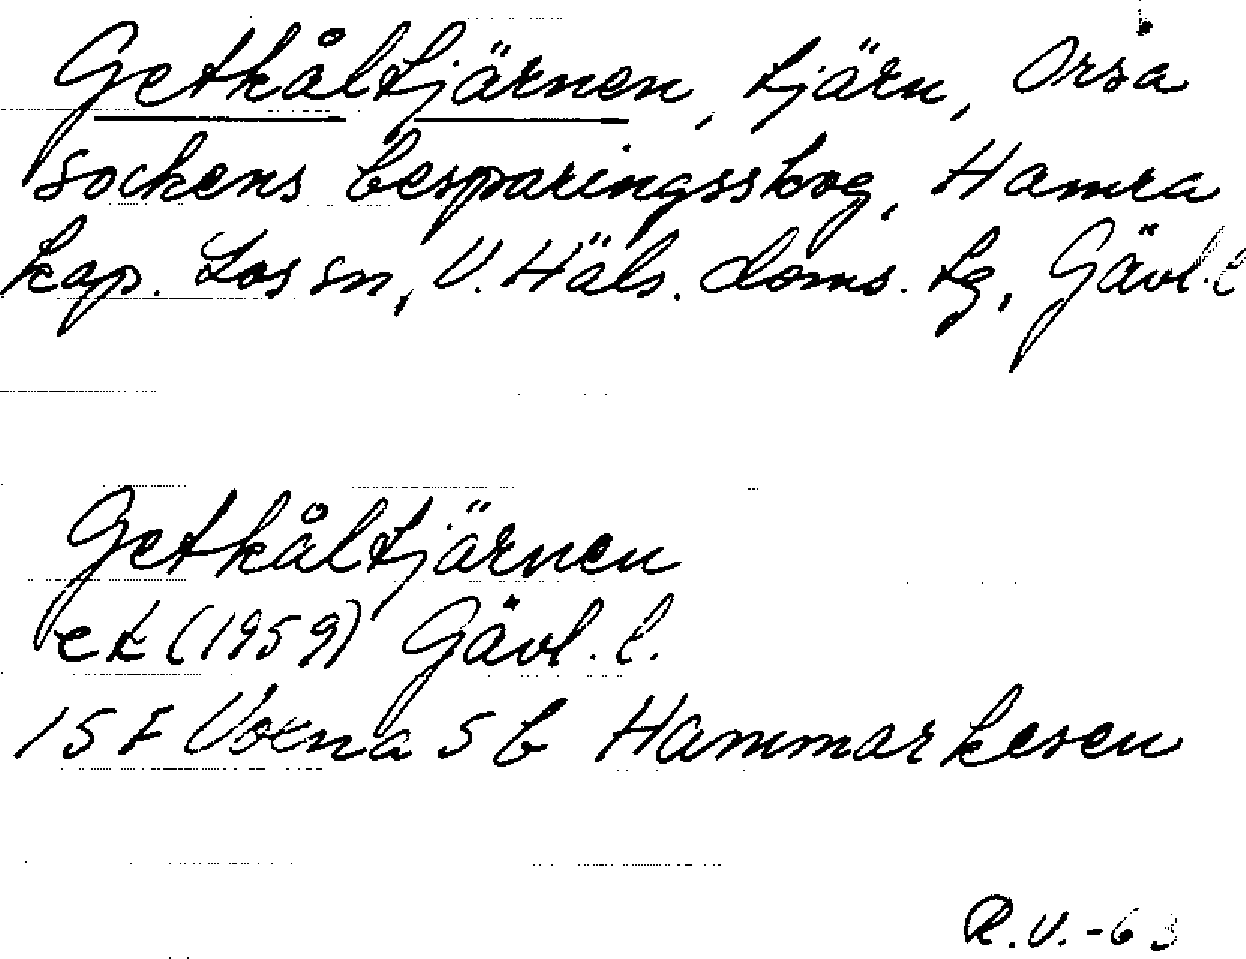 Getkåltjärnen, tjärn, Orsa
sockens besparingsskog, Hamra
kap. Los sn, V. Häls. doms. lg, Gävl. l
Getkåltjärnen
ek (1959) Gävl. l.
15 F Voxna 5 b Hammarkesen
R.V.-63